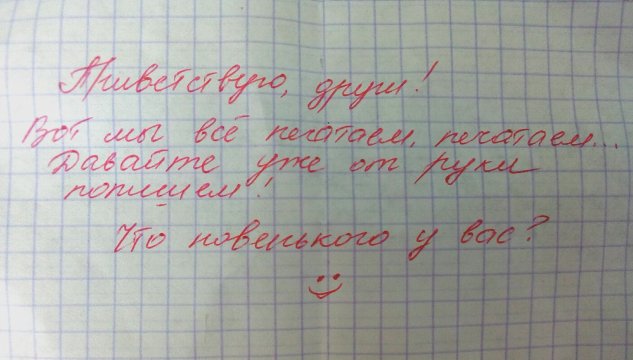 Приветствую, други!
Вот мы всё печатаем, печатаем...
Давайте уже от руки
попишем!
Что новенького у вас?